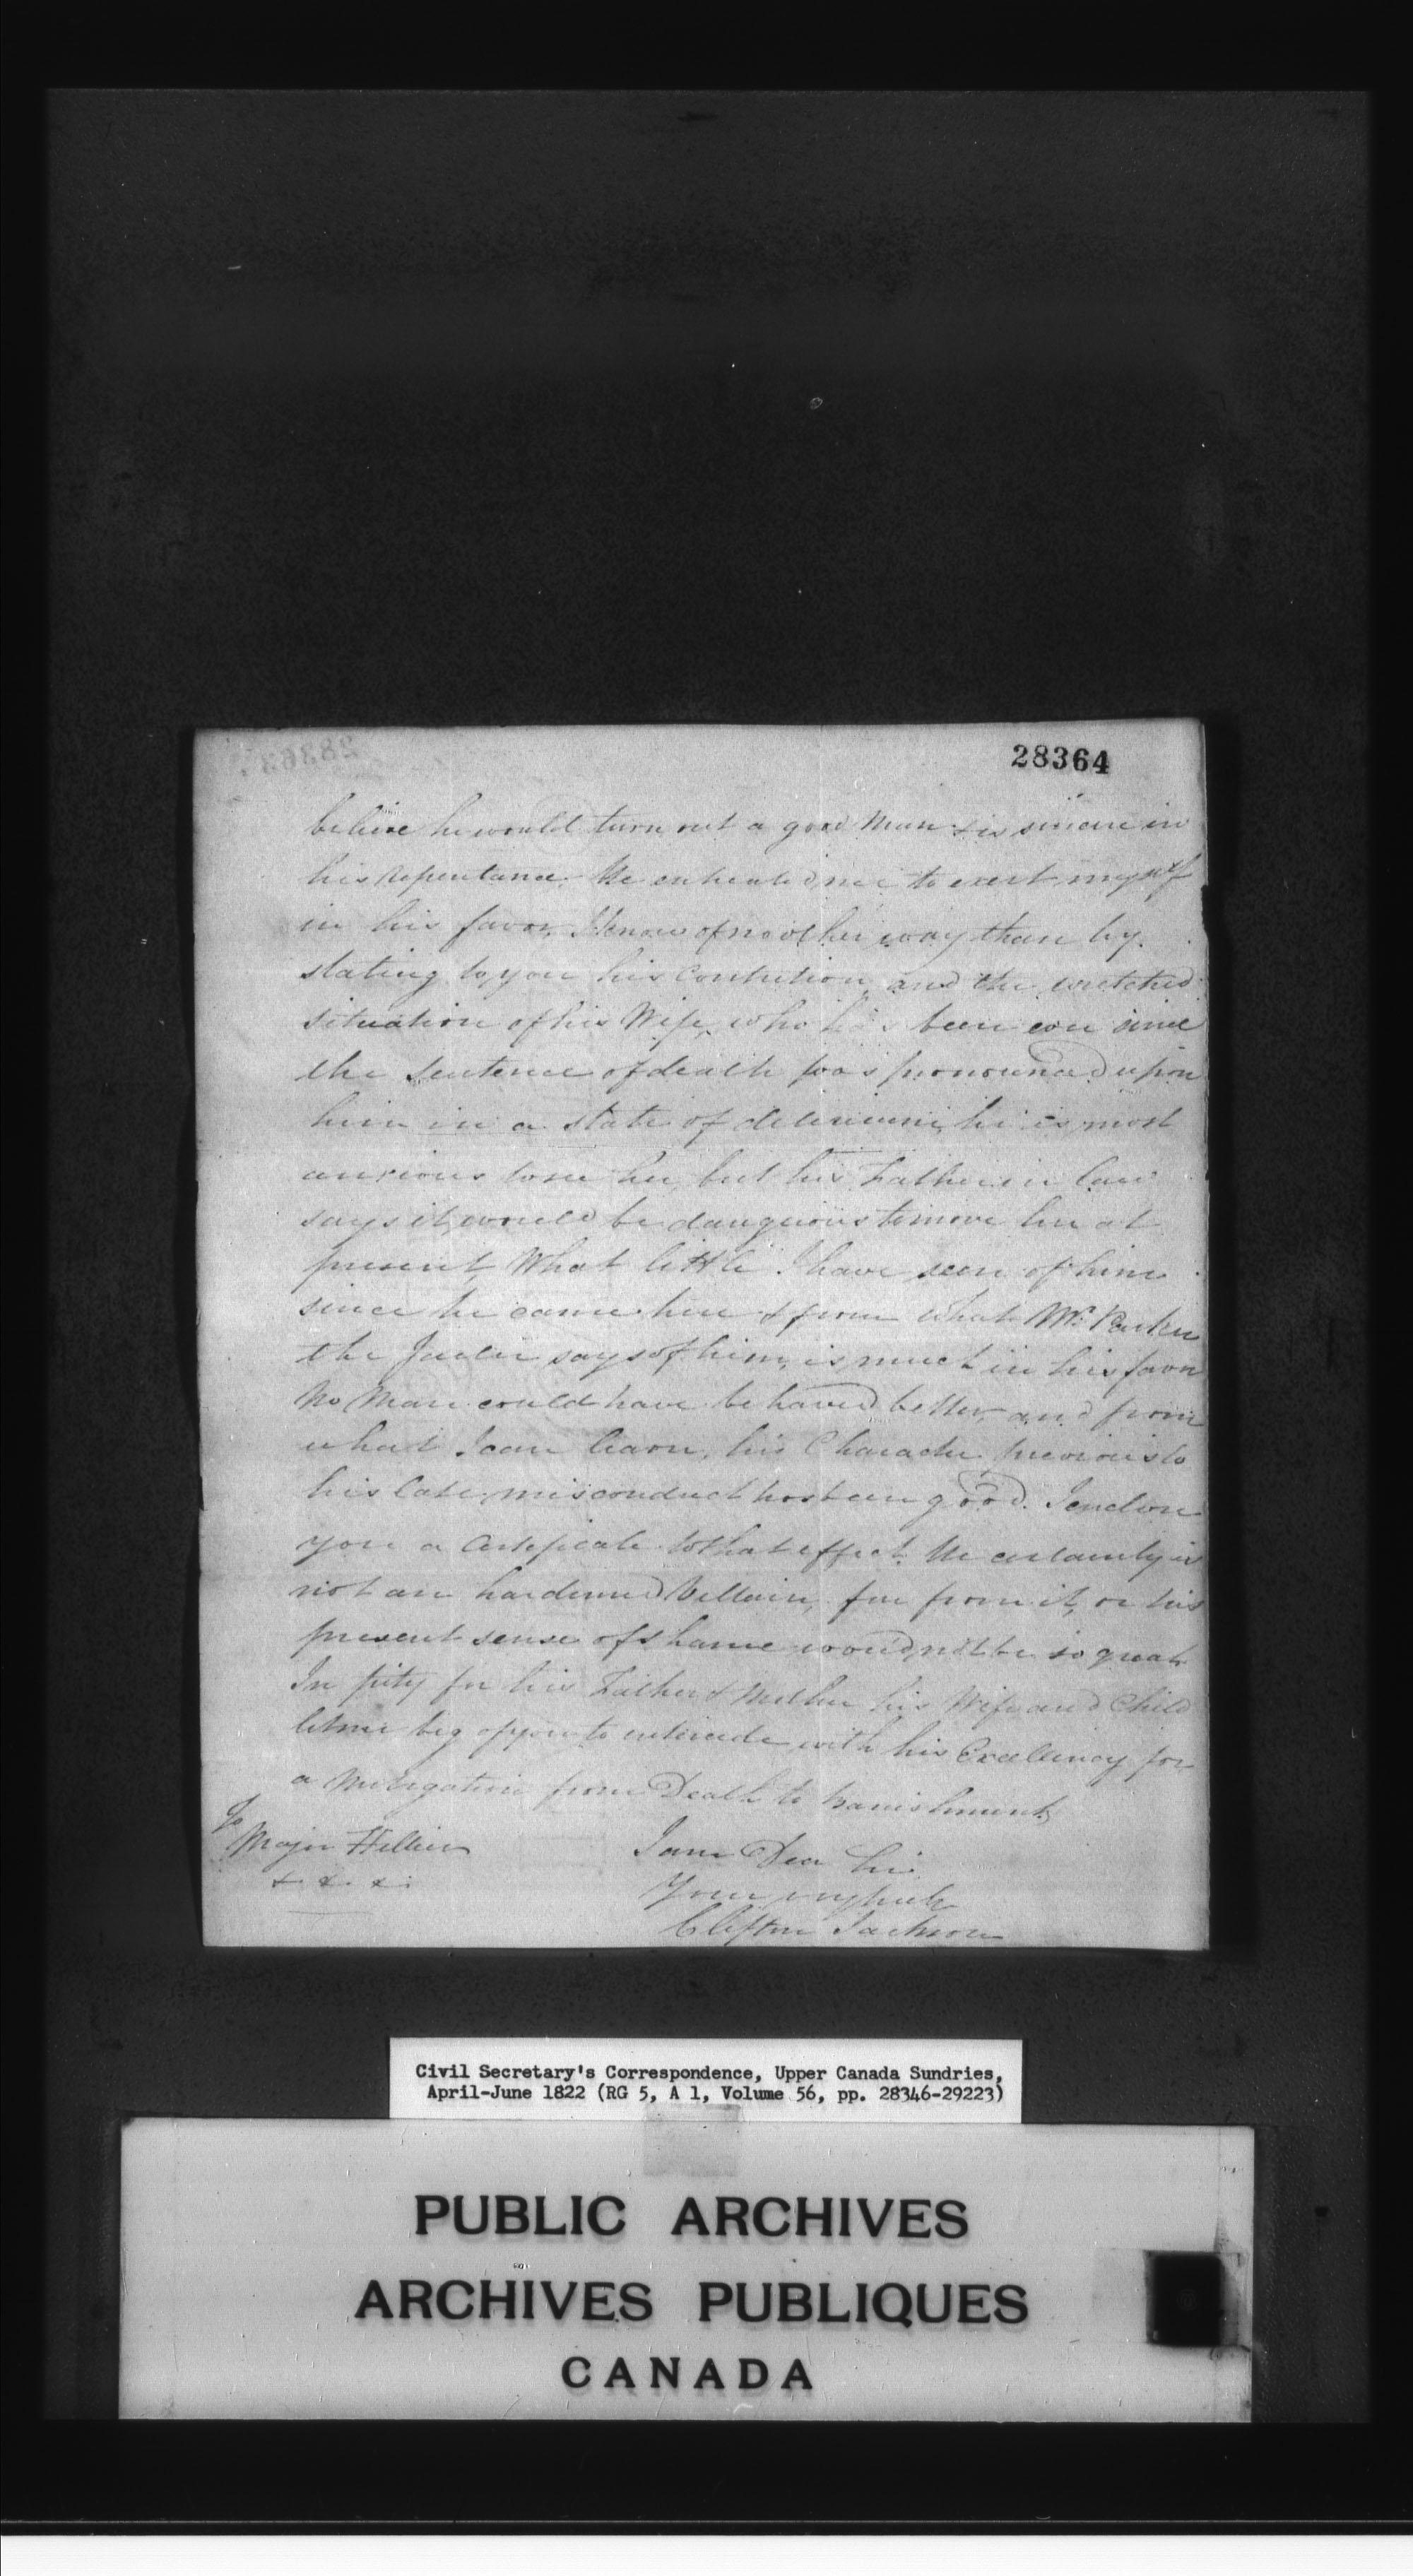 28364
believe he would turn out a good Man & is sincere in
his repentance. He entreated me to exert myself
in his favor, I know of no other way than by
stating to you his Contrition and the wretched
situation of his Wife, who has been ever since
the Sentence of death was pronounced upon
him in a state of delirium, he is most
anxious to see her, but his Father in law
says it would be dangerous to move her at
present, What little I have seen of him
since he came here & from what Mr. Parker
the Jailer says of him, is much in his favor
No Man could have behaved better, and from
what I can learn, his Character previous to
his late misconduct has been good. I enclose
you a Certificate to that effect. He certainly is
not an hardened Villain, far from it, or his
present sense of shame would not be so great
In pity for his Father & Mother his Wife and Child
let me beg of you to intercede with his Excellency for
a Mitigation from Death to banishment.
To
Major Hillier
I am Dear Sir
Your
Clifton Jackson
Civil Secretary's Correspondence, Upper Canada Sundries,
April-June 1822 (RG 5, A 1, Volume 56, pp. 28346-29223)
PUBLIC ARCHIVES
ARCHIVES PUBLIQUES
CANADA